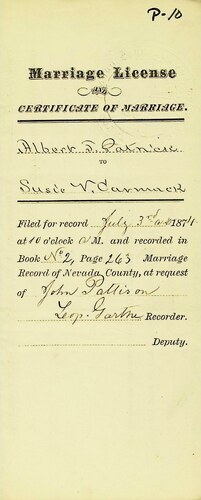 P-10
Marriage License
AND
CERTIFICATE OF MARRIAGE.
Albert F.
TO
Susie V. Carmack
Filed for record July 3rd 1874
at 10 o'clock A M. and recorded in
Book No 2, Page 263 Marriage
Record of Nevada County, at request
of John Pattison
Leop. Garthe Recorder.
Deputy.